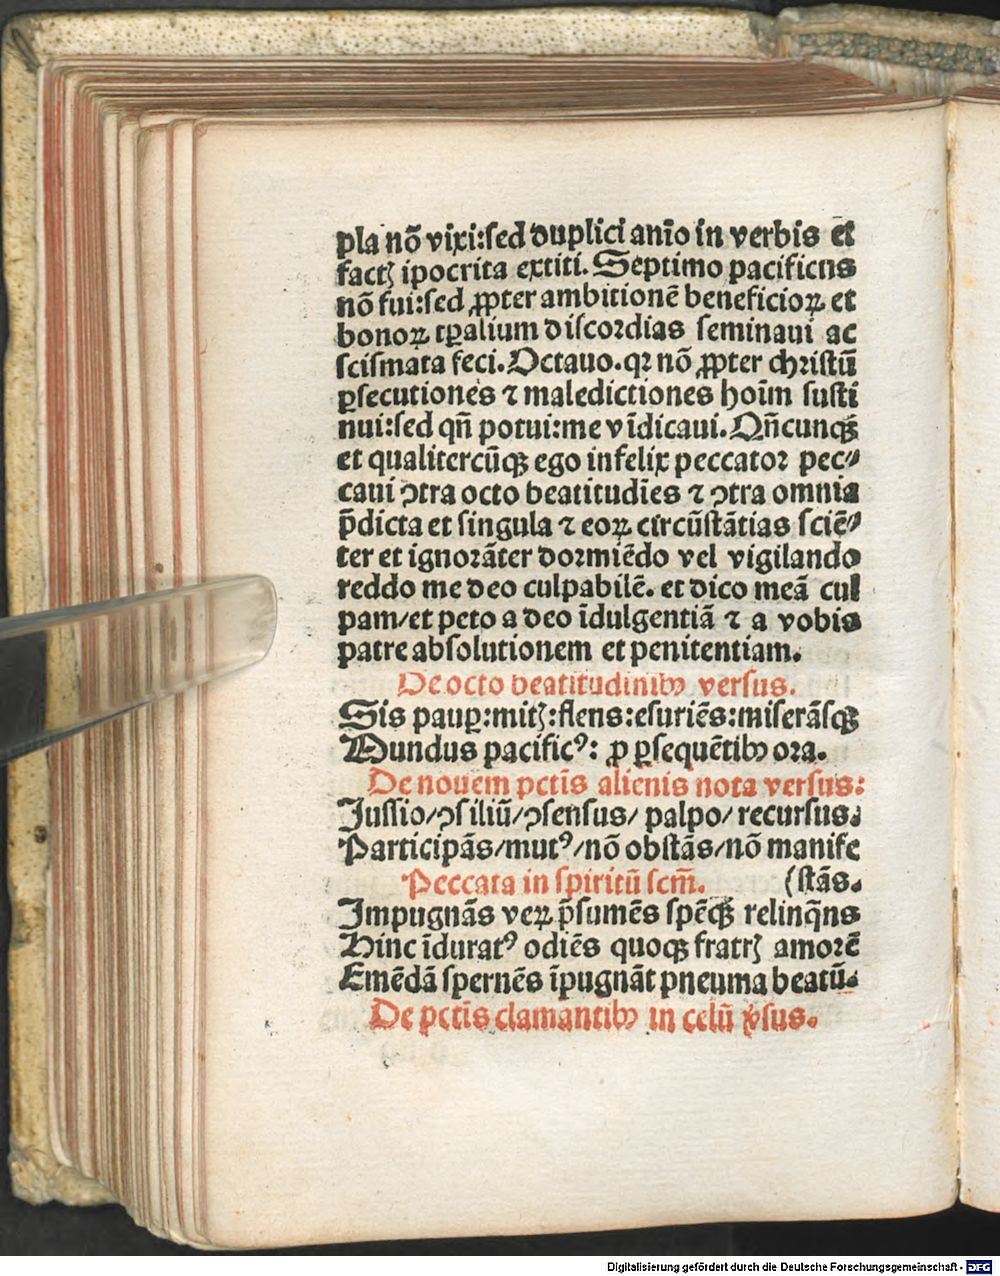 pla nō vixi:sed duplici anīo in verbis et
factꝫ ipocrita extiti. Septimo pacificus
nō fui:sed ꝓpter ambitionē beneficioꝝ et
bonoꝝ tꝑalium discordias seminaui ac
scismata feci. Octauo. qꝛ nō ꝓpter christū
ꝑsecutiones ⁊ maledictiones hoīm susti
nui:sed qn̄ potui:me vīdicaui. Qn̄cunqꝫ
et qualitercūqꝫ ego infelix peccator pec⸗
caui ↄtra octo beatitudīes ⁊ ↄtra omnia
p̄dicta et singula ⁊ eoꝝ circūstātias sciē⸗
ter et ignorāter dormiēdo vel vigilando
reddo me deo culpabilē. et dico meā cul
pam/et peto a deo īdulgentiā ⁊ a vobis
patre absolutionem et penitentiam.
De octo beatitudinibꝫ versus.
Sis pauꝑ:mitꝫ:flens:esuriēs:miserāsqꝫ
Mundus pacificꝰ: ꝓ ꝑsequētibꝫ ora.
De nouem pctīs alienis nota versus:
Jussio/ↄsiliū/ↄsensus/ palpo/ recursus.
Participās/mutꝰ/nō obstās/nō manife
Peccata in spiritū scm̄. (stās.
Impugnās veꝝ p̄sumēs spēqꝫ relinq̄ns
Hinc īduratꝰ odiēs quoqꝫ fratrꝫ amorē
Emēdā spernēs īpugnāt pneuma beatū.
De pctīs clamantibꝫ in celū ꝟsus.
Digitalisierung gefördert durch die Deutsche Forschungsgemeinschaft - DFG